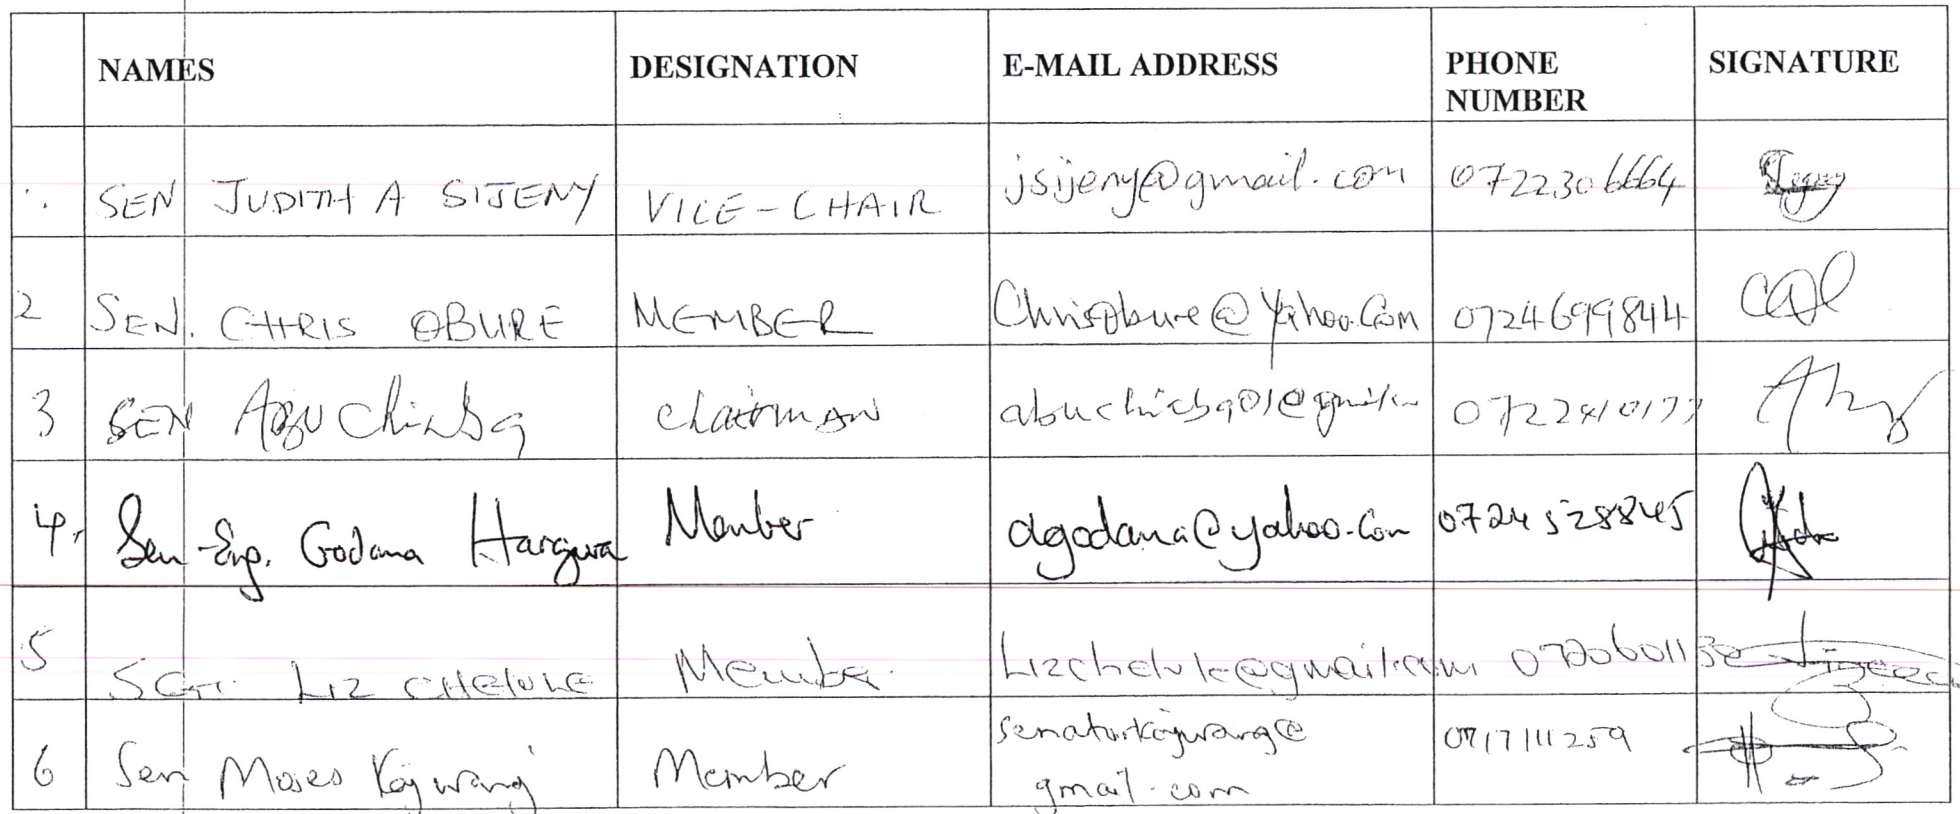 NAMES DESIGNATION E-MAIL ADDRESS PHONE NUMBER SIGNATURE
SEN JUDITH A SIJENY VICE-CHAIR jsijeny@gmail.com 0722306664
2 SEN. CHRIS OBURE MEMBER Chrisobure@Yahoo.Com 0724699844
3 SEN ABU Chiaba chairman abuchiaba01@gmail 0722410177
4. Sen Eng. Godana Hargura Member dgodana@yahoo.Com
5 LIZ CHELULE Member Lizchelule@gmail.com
6 Sen Moses Kajwang' Member senatorkajwang@
gmail.com 0717111259